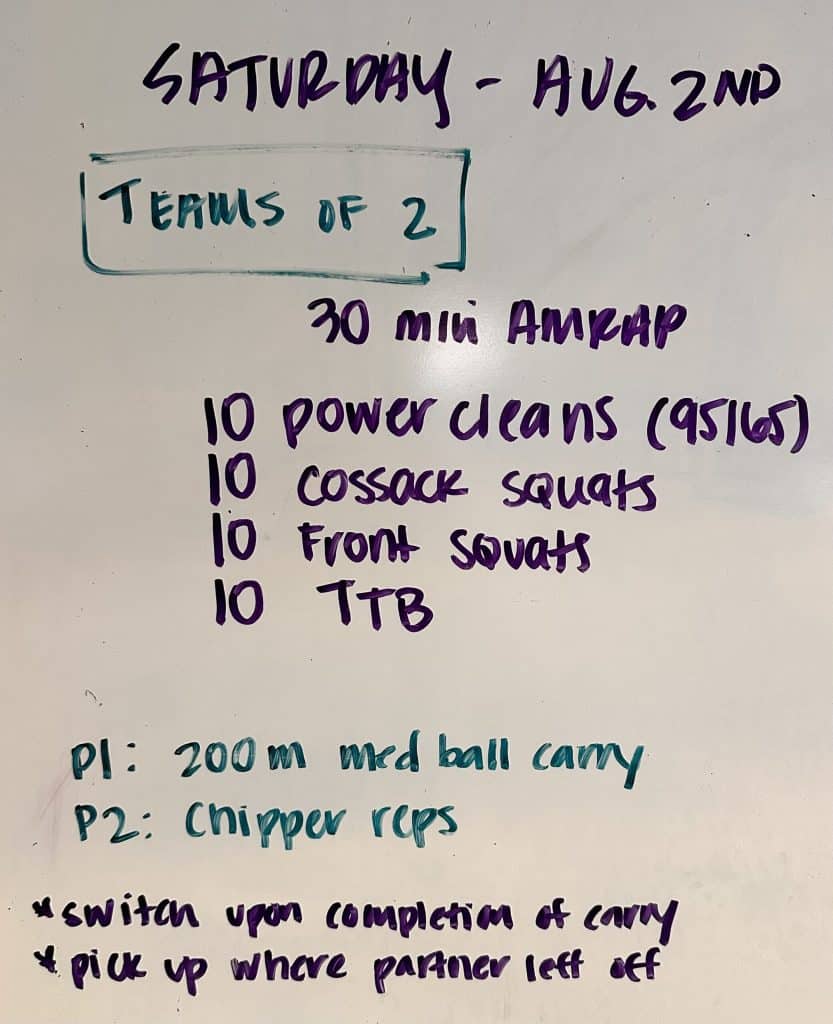 SATURDAY - AUG. 2ND
TEAMS OF 2
30 min AMRAP
10 power cleans (95/65)
10 cossack squats
10 Front squats
10 TTB
P1: 200m med ball carry
P2: Chipper reps
*switch upon completion of carry
*pick up where partner left off